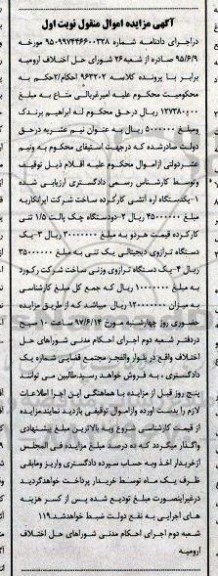 آگهی مزایده اموال منقول نوبت اول
دراجرای دادنامه شماره ۹۵۰۹۹۷۴۴۶۶۰۰۳۲۸ مورخه
۹۵/۶/۹ صادره از شعبه ۲۶ شورای حل اختلاف ارومیه
برابر با پرونده کلاسه ۹۶۳۲۰۲ احکام/۲حکم به
محکومیت محکوم علیه امیرغربالی متاع به مبلغ
۱۲۷۳۸۰۰۰۰ ریال درحق محکوم له ابراهیم برندک
ومبلغ ۵۰۰۰۰۰۰ ریال به عنوان نیم عشریه درحق
دولت صادرشده که درجهت استیفای محکوم به ونیم
عشردولتی ازاموال محکوم علیه اقلام ذیل توقیف
وتوسط کارشناس رسمی دادگستری ارزیابی شده
۱-یکدستگاه اره آتشی کارکرده ساخت شرکت ایرانکاربه
مبلغ ۴۵۰۰۰۰۰۰ ریال ۲-دودستگاه چک پالت ۱/۵ تنی
کارکرده قیمت هردو به مبلغ ۳۰۰۰۰۰۰۰ ریال ۳-یک
دستگاه ترازوی دیجیتالی یک تنی به مبلغ ۳۵۰۰۰۰۰۰
ریال ۴-یک دستگاه ترازوی وزنی ساخت شرکت رکورد
به مبلغ ۱۰۰۰۰۰۰۰ ریال که جمع کل مبلغ کارشناسی
به میزان ۱۲۰۰۰۰۰۰۰ ریال میباشد که از طریق مزایده
حضوری روز چهارشنبه مورخ ۹۷/۶/۱۴ ساعت ۱۰ صبح
دردفتر شعبه دوم اجرای احکام مدنی شوراهای حل
اختلاف واقع در بلوار والفجر مجتمع قضایی شماره یک
دادگستری ، به فروش خواهد رسید.طالبین می توانند
پنج روز قبل از مزایده با هماهنگی این اجرا اطلاعات
لازم را بدست آورده وازاموال توقیفی بازدید نمایندمزایده
از قیمت کارشناسی شروع وبه بالاترین مبلغ پیشنهادی
واگذار میگردد که ده درصد مبلغ مزایده فی المجلس
ازخریدار اخذ وبه حساب سپرده دادگستری واریز ومابقی
ظرف یک ماه توسط خریدار پرداخت خواهدگردید
درغیراینصورت مبلغ تودیع شده پس از کسر هزینه
های اجرایی به نفع دولت ضبط خواهدشد.۱۱۹
شعبه دوم اجرای احکام مدنی شوراهای حل اختلاف
ارومیه